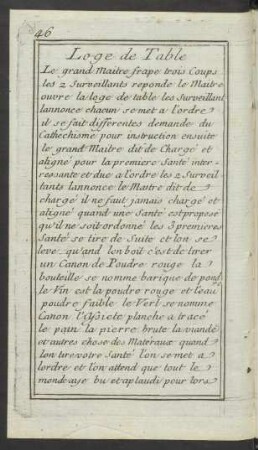 46
Loge de Table
Le grand Maitre frape trois Coups
les 2 Surveillants reponde le Maitre
ouvre la loge de table les Surveillant
lannonce chacun se met a l'ordre
il se fait differentes demande du
Cathechisme pour instruction ensuite
le grand Maitre dit de Chargé et
aligné pour la premiere Santé inter-
ressante et due a lordre les 2 Surveil
tants lannonce le Maitre dit de
chargé il ne faut jamais chargé et
aligné quand une Santé est proposé
qu'il ne soit ordonné les 3 premieres
Santé se tire de Suite et lon se
leve quand lon boit c'est de tirer
un Canon de Poudre rouge la
bouteille se nomme barique de poud
la Vin est la poudre rouge et l'eau
poudre faible le Verl se nomme
Canon l'assiete planche a tracé
le pain la pierre brute la viande
et autres chose des Materaux quand
lon tire votre Santé l'on se met a
lordre et lon attend que tout le
monde aye bu et aplaudi pour lors